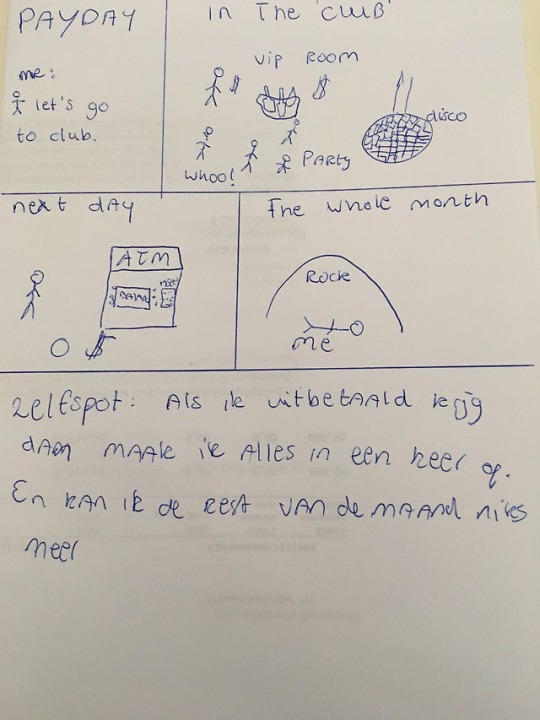 PAYDAY
me:
let's go
to club.
in The 'club'
vip ROOM
$ $
disco
whoo!
PARty
next day
ATM
O $
The whole month
Rock
me
zelfspot: Als ik uitbetaald krijg
dan maak ik Alles in een keer op.
En kan ik de rest van de maand niks
meer